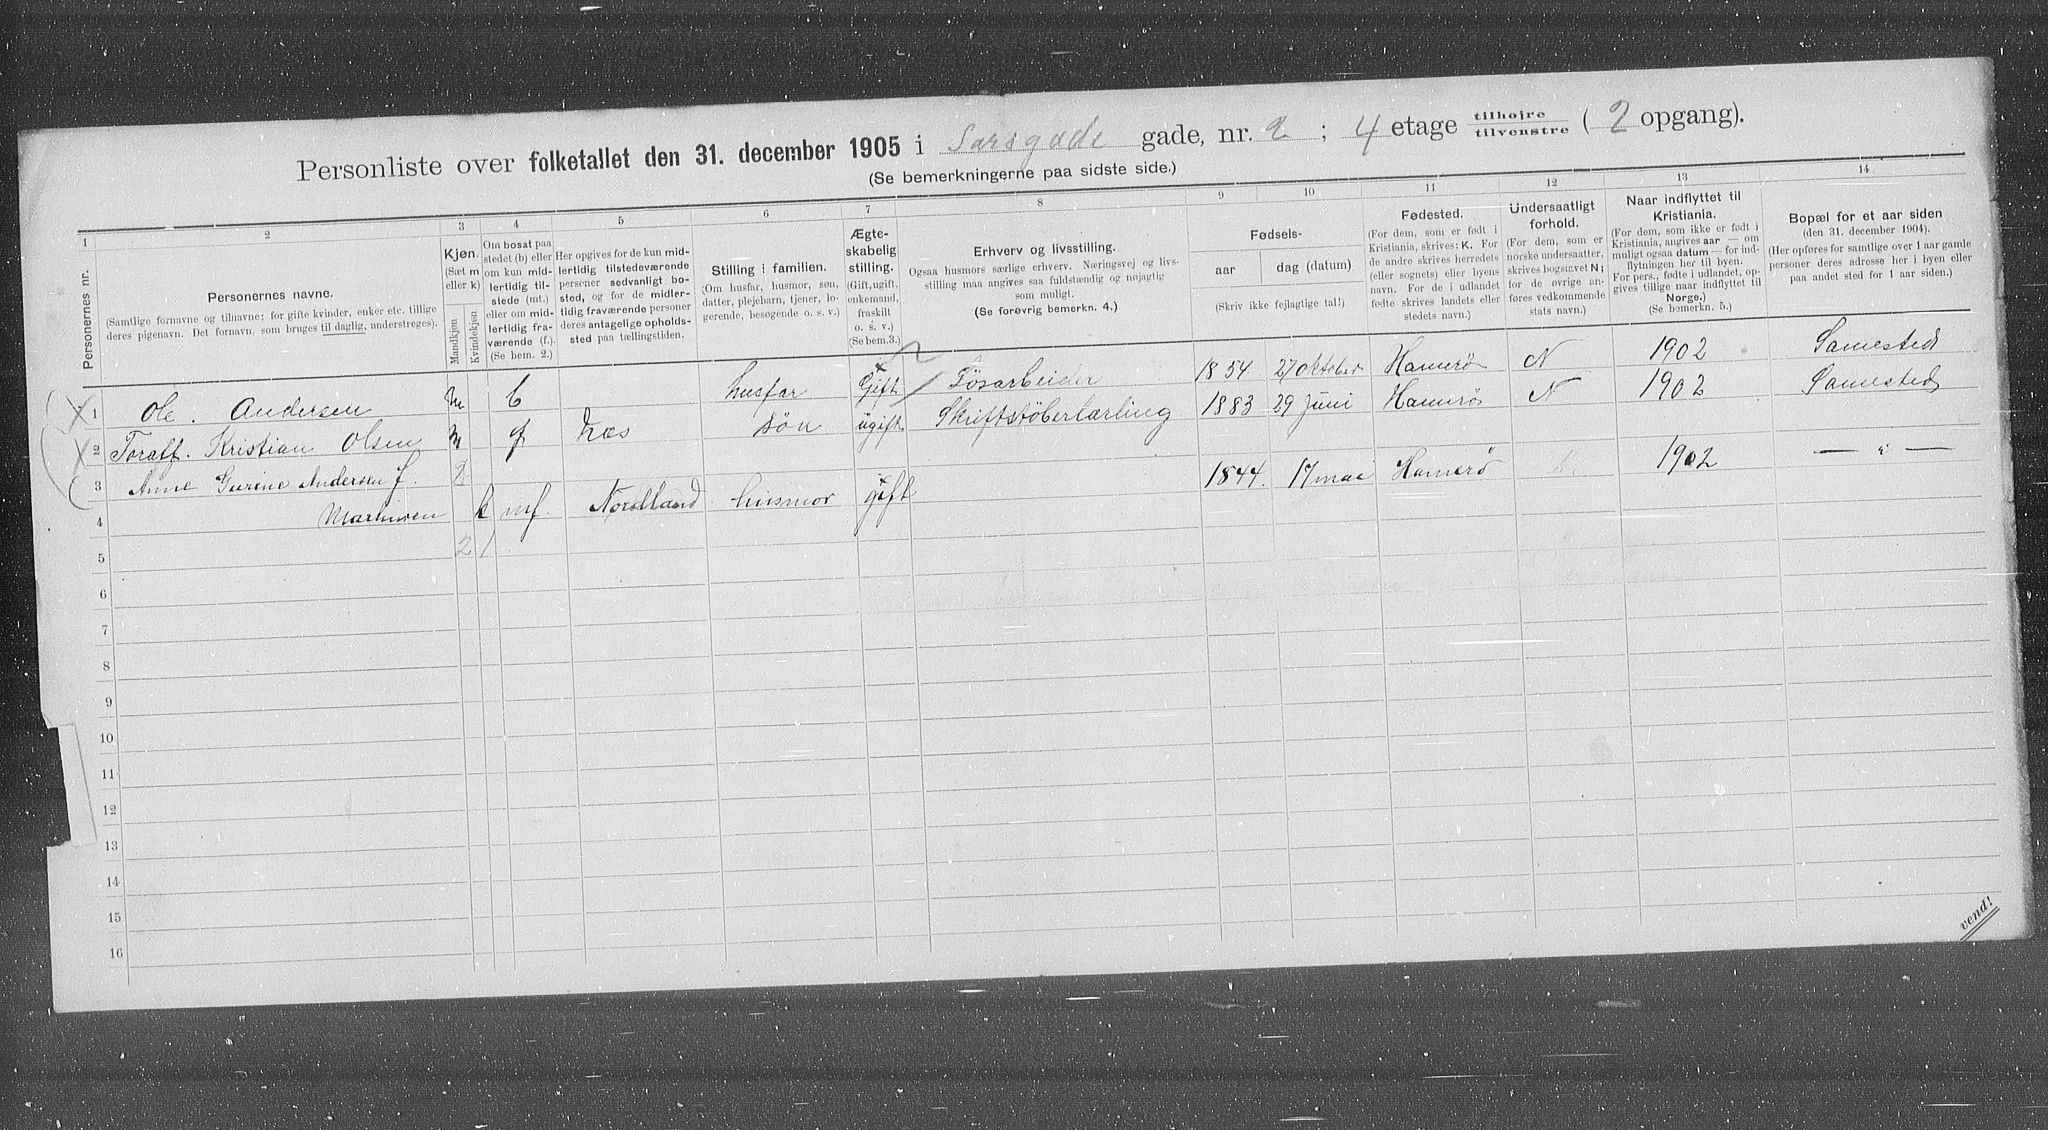 Personliste over folketallet den 31. december 1905 i Sarsgade gade, nr. 2 ; 4 etage tilhøjre / tilvenstre ( 2 opgang).
(Se bemerkningerne paa sidste side.)
1 2 3 4 5 6 7 8 9 10 11 12 13 14
Personernes nr.
Personernes navne.
(Samtlige fornavne og tilnavne; for gifte kvinder, enker etc. tillige
deres pigenavn. Det fornavn, som bruges til daglig, understreges).
Kjøn.
(Sæt m
eller k)
Mandkjøn
Kvindekjøn
Om bosat paa
stedet (b) eller
om kun mid-
lertidig til-
stede (mt.)
eller om mid-
lertidig fra-
værende (f.)
(Se bem. 2.)
Her opgives for de kun mid-
lertidig tilstedeværende
personer sedvanligt bo-
sted, og for de midler-
tidig fraværende personer
deres antagelige opholds-
sted paa tællingstiden.
Stilling i familien.
(Om husfar, husmor, søn,
datter, plejebarn, tjener, lo-
gerende, besøgende o. s. v.)
Ægte-
skabelig
stilling.
(Gift, ugift,
enkemand,
fraskilt
o. s. v.)
(Se bem.3.)
Erhverv og livsstilling.
Ogsaa husmors særlige erhverv. Næringsvej og livs-
stilling maa angives saa fuldstændig og nøjagtig
som muligt.
(Se forøvrig bemerkn. 4.)
Fødsels-
aar dag (datum)
(Skriv ikke fejlagtige tal!)
Fødested.
(For dem, som er født i
Kristiania, skrives: K. For
de andre skrives herredets
(eller sognets) eller byens
navn. For de i udlandet
fødte skrives landets eller
stedets navn.)
Undersaatligt
forhold.
(For dem, som er
norske undersaatter,
skrives bogstavet N;
for de øvrige an-
føres vedkommende
stats navn.)
Naar indflyttet til
Kristiania.
(For dem, som ikke er født i
Kristiania, angives aar — om
muligt ogsaa datum — for ind-
flytningen her til byen.
For pers., fødte i udlandet, op-
gives tillige naar indflyttet til
Norge.)
(Se bemerkn. 5.)
Bopæl for et aar siden
(den 31. december 1904).
(Her opføres for samtlige over 1 aar gamle
personer deres adresse her i byen eller
paa andet sted for 1 aar siden.)
1 Ole. Andersen m b husfar Gift Løsarbeider 1854 27 oktober Hamerö N 1902 Samested
2 Toralf. Kristian Olsen m f Næs søn ugift Skriftstöberlærling 1883 29 Juni Hamerö N 1902 Samested
3 Anne Gurine Andersen f. 1844. 17 mai Hamerö N. 1902 — " —
4 Martinsen k mf. Nordland husmor gift
5 2 1
6
7
8
9
10
11
12
13
14
15
16
vend!